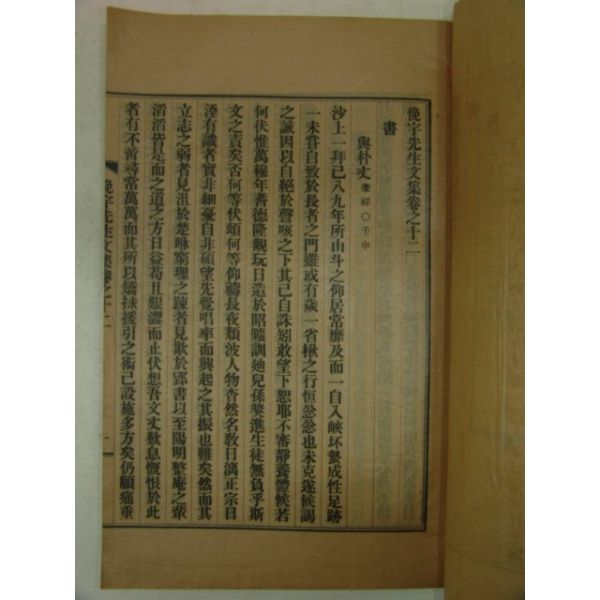 俛宇先生文集卷之十二
書
與朴丈 壬申
沙上一拜已八九年所山斗之仰居常靡及而一自入峽坏蟄成性足跡
一未嘗自致於長者之門雖或有歲一省楸之行恒忩忩也未克遂候謁
之誠因以自絕於謦咳之下其已自誅矧敢望下恕耶不審靜養體候若
何伏惟萬穆年耆德隆觀玩日造於昭曠訓廸兒孫獎進生徒無負乎斯
文之責矣否何等伏頌何等仰禱長夜頹波人物杳然名敎日漓正宗日
湮有識者實非細憂自非碩望先覺唱率而興起之其振也難矣然而其
立志之弱者見沮於楚咻窮理之疎者見欺於郢書以至陽明整庵之輩
滔滔皆是而之道之方日益荀且艱澀而止伏想吾文丈歎息慨恨於此
者有不啻尋常萬萬而其所以矯捄援引之術已設施多方矣仍願痛垂
俛宇先生文集卷之十二 一